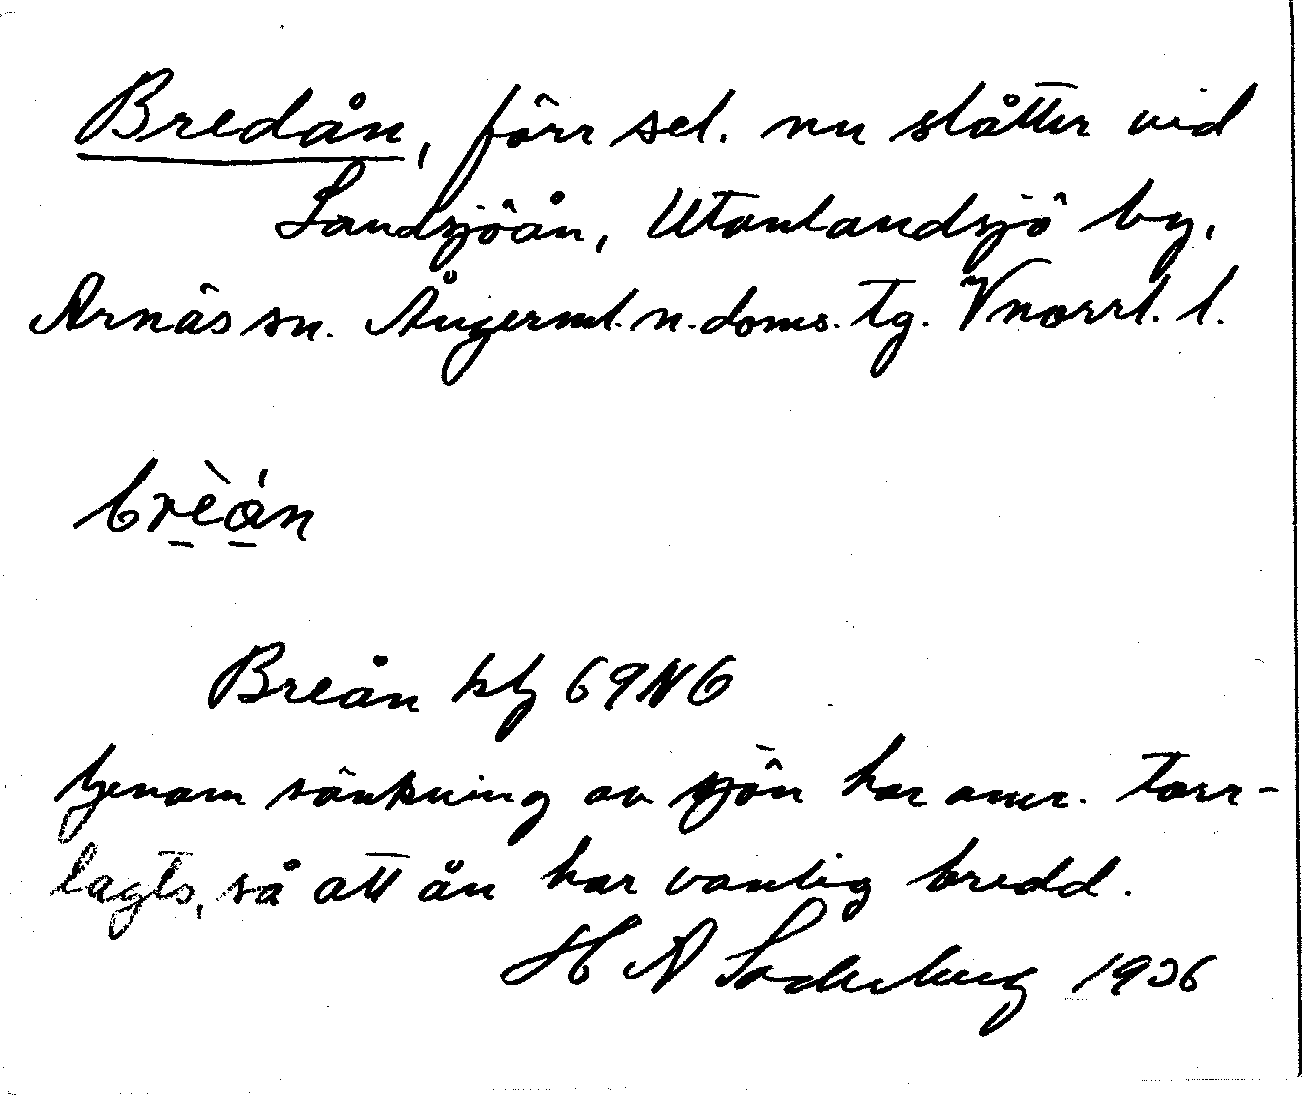 Bredån, förr sel. nu slåtter vid
Sandsjöån, Utanlandsjö by,
Arnäs sn. Ångerml. n. doms. tg. Vnorrl. l.
brèån
Breån kbl 69 N6
Genom sänkning av sjön har omr. torr-
lagts, så att ån har vanlig bredd.
H A Söderberg 1936